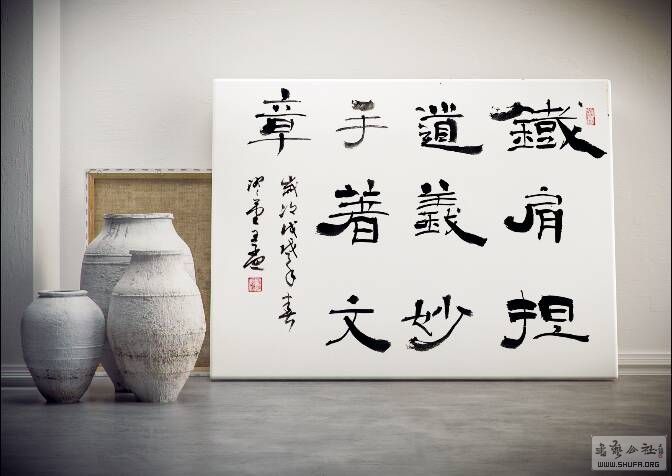 鐵肩担
道義妙
手著文
章
歲次戊戌年春
書藝公社
WWW.SHUFA.ORG